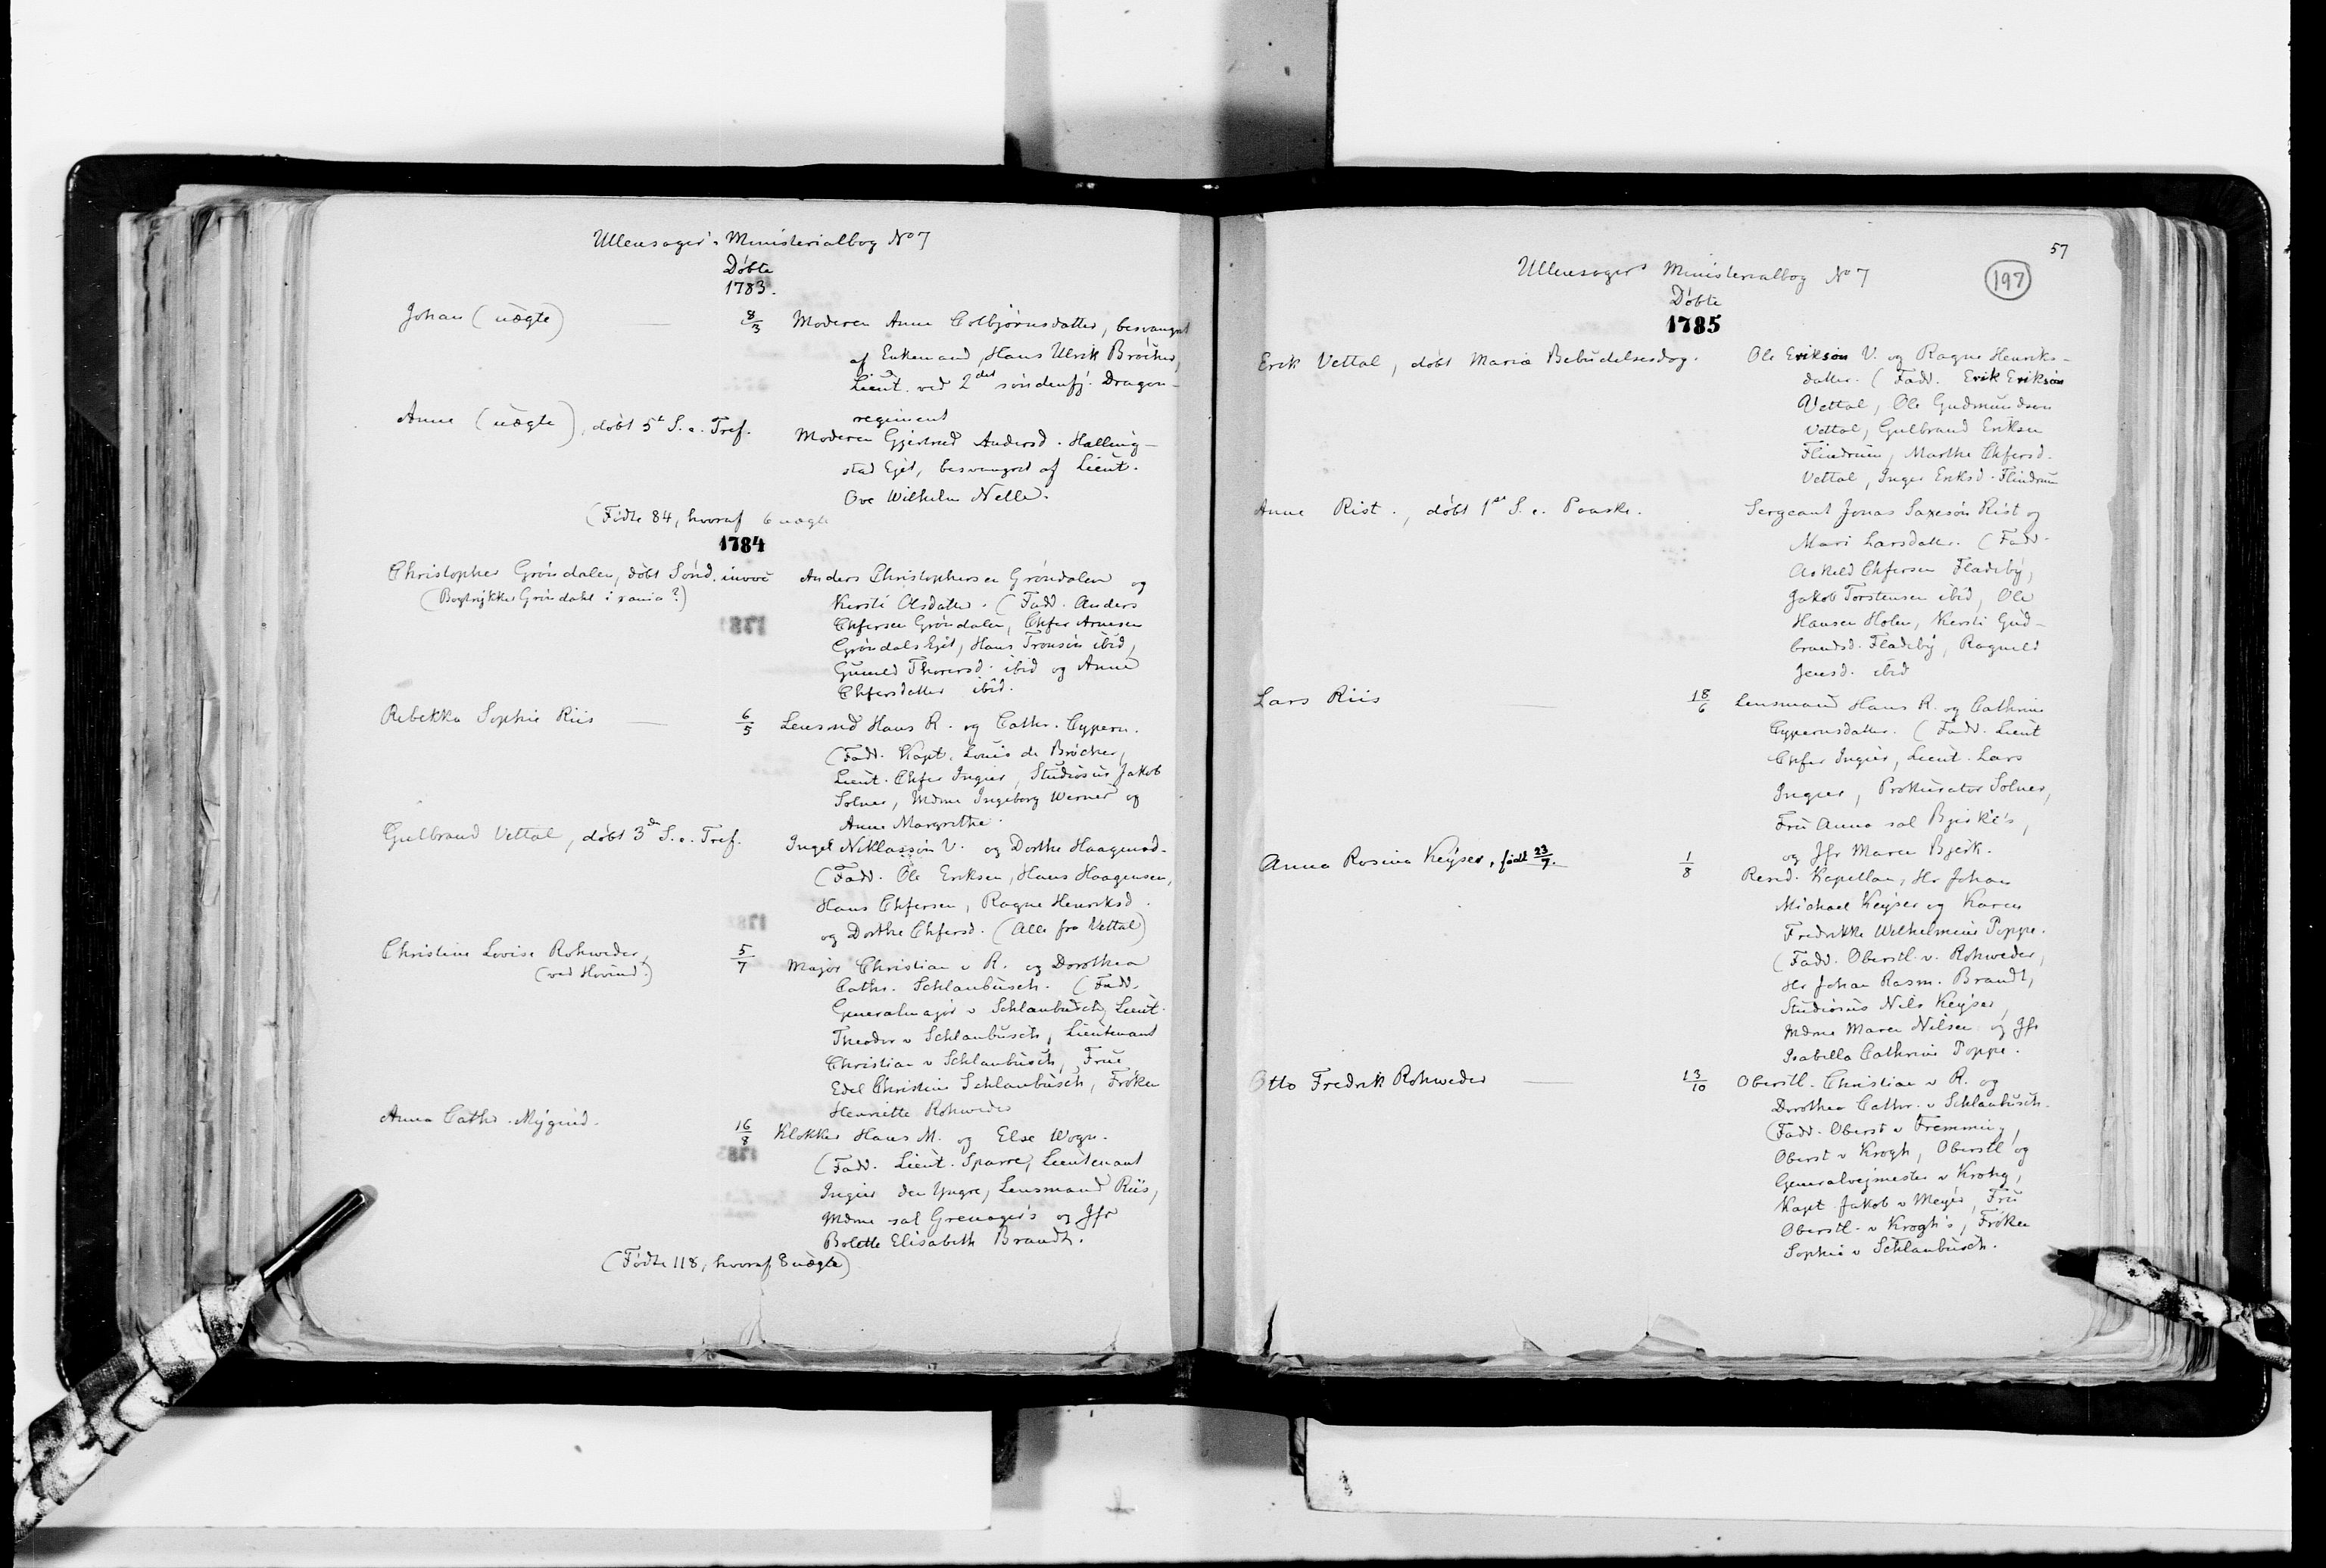 Ullensager's Ministerialbog No 7
Døbte
1783.
Johan (uægte) 8/3 Moderen Anne Colbjørnsdatter, besvangret
af Enkemand, Hans Ulrik Bröcher,
Lieut. ved 2det søndenfj. Dragon-
regiment
Anne (uægte), døbt 5te S. e. Tref. Moderen Gjertrud Andersd. Helling-
stad Ejet, besvangret af Lieut.
Ove Wilhelm Nelle.
(Fødte 84, hvoraf 6 uægte
1784
Christopher Gröndalen, døbt Sønd. invoc Anders Christophersen Gröndalen og
(Bogtrykker Gröndahl i xania?) Kersti Olsdatter. (Fadd. Anders
Chfersen Gröndalen, Chfer Arnesen
Gröndals Ejet, Hans Tronsön ibid,
Gunild Thorersd. ibid og Anne
Chfersdatter ibid.
Rebekka Sophie Riis 6/5 Lensmd Hans R. og Cathr. Cypern.
(Fadd. Kapt. Louis de Bröcher,
Lieut. Chfer Ingier, Studiosus Jakob
Solner, Mdme Ingeborg Werner og
Anne Margrethe.
Gulbrand Vettal, døbt 3de S. e. Tref. Ingel Niklassön V. og Dorthe Haagensd.
(Fadd. Ole Eriksen, Hans Haagensen,
Hans Chfersen, Ragne Henriksd.
og Dorthe Chfersd. (Alle fra Vettal)
Christine Lovise Rohweder, 5/7 Major Christian v R. og Dorothea
(ved Hovind.) Cathr. Schlanbusch. (Fadd.
Generalmajor v Schlanbusch, Lieut.
Theodor v Schlanbusch, Lieutenant
Christian v Schlanbusch, Frue
Edel Christine Schlanbusch, Frøken
Henriette Rohweder
Anna Cathr. Mygind. 16/8 Klokker Hans M. og Else Wogn.
(Fadd. Lieut. Sparre, Lieutenant
Ingier den Yngre, Lensmand Riis,
Mdme sal Grenager's og Jfr
Bolette Elisabeth Brandt.
(Fødte 118, hvoraf 8 uægte)
57
197
Ullensager's Ministerialbog No 7
Døbte
1785
Erik Vettal, døbt Mariæ Bebudelsesdag. Ole Eriksön V. og Ragne Henriks-
datter. (Fadd. Erik Eriksön
Vettal, Ole Gudmundsen
Vettal, Gulbrand Eriksen
Flindrum, Marthe Chfersd.
Vettal, Inger Eriksd. Flindrum
Anne Rist., døbt 1ste S. e. Paaske. Sergeant Jonas Saxesön Rist og
Mari Larsdatter. (Fadd.
Askeld Chfersen Fladeby,
Jakob Torstensen ibid, Ole
Hansen Holm, Kersti Gud-
brandsd. Fladeby, Ragnild
Jensd. ibid
Lars Riis 18/6 Lensmand Hans R. og Cathrine
Cypernsdatter. (Fadd. Lieut
Chfer Ingier, Lieut. Lars
Ingier, Prokurator Solner,
Fru Anna sal Bjerke's,
og Jfr Maren Bjerk.
Anna Rosina Keyser, født 23/7. 1/8 Resid. Kapellan, Hr Johan
Michael Keyser og Karen
Fredrikke Wilhelmine Poppe.
(Fadd. Oberstl. v. Rohweder,
Hr Johan Rasm. Brandt,
Studiosus Nils Keyser,
Mdme Maren Nilsen og Jfr
Isabella Cathrine Poppe.
Otto Fredrik Rohweder 13/10 Oberstl. Christian v R. og
Dorothea Cathr. v Schlanbusch.
(Fadd. Oberst v Fremming,
Oberst v Krogh, Oberstl og
Generalvejmester v Krohg,
Kapt Jakob v Meyer, Fru
Oberstl. v Krogh's, Frøken
Sophie v Schlanbusch.